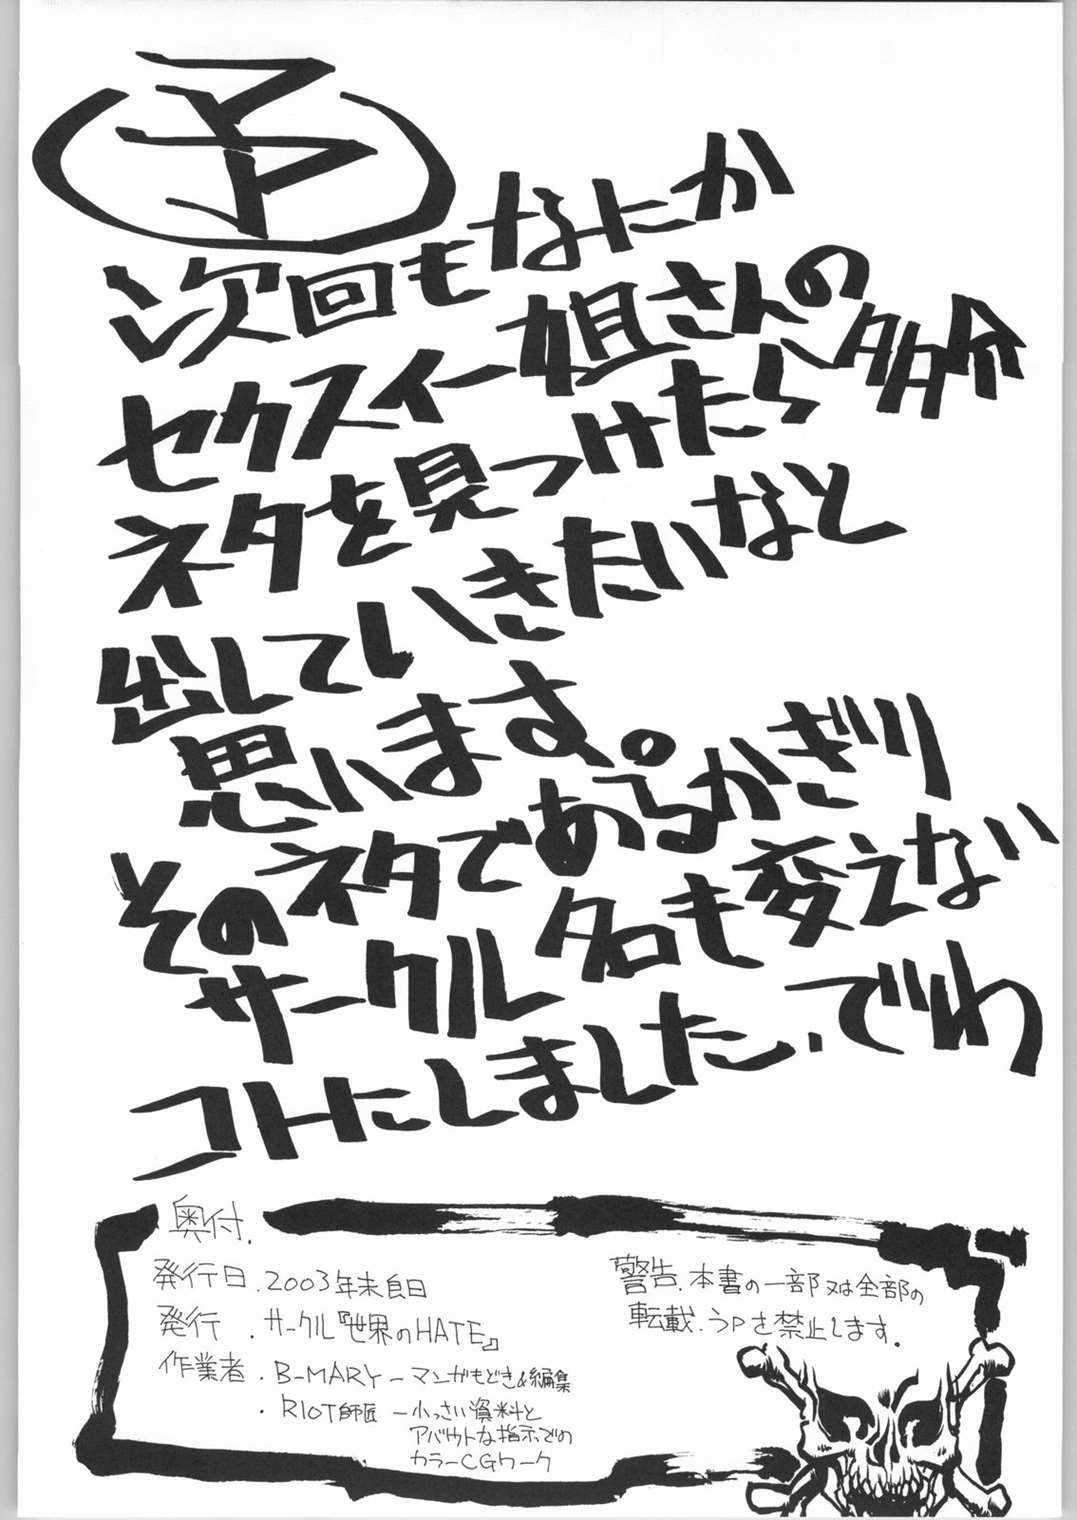 予
次回もなにか
セクスィー姐さんの
ネタを見つけたら多分
出していきたいなと
思います。
そのネタであるかぎり
サークル名も変えない
コトにしました.でわ
奥付.
発行日.2003年末良日
発行.サークル『世界のHATE』
作業者.B-MARY-マンガもどき&編集
・RIOT師匠-小っさい資料と
アバウトな指示での
カラーCGワーク
警告.本書の一部又は全部の
転載.うPを禁止します.